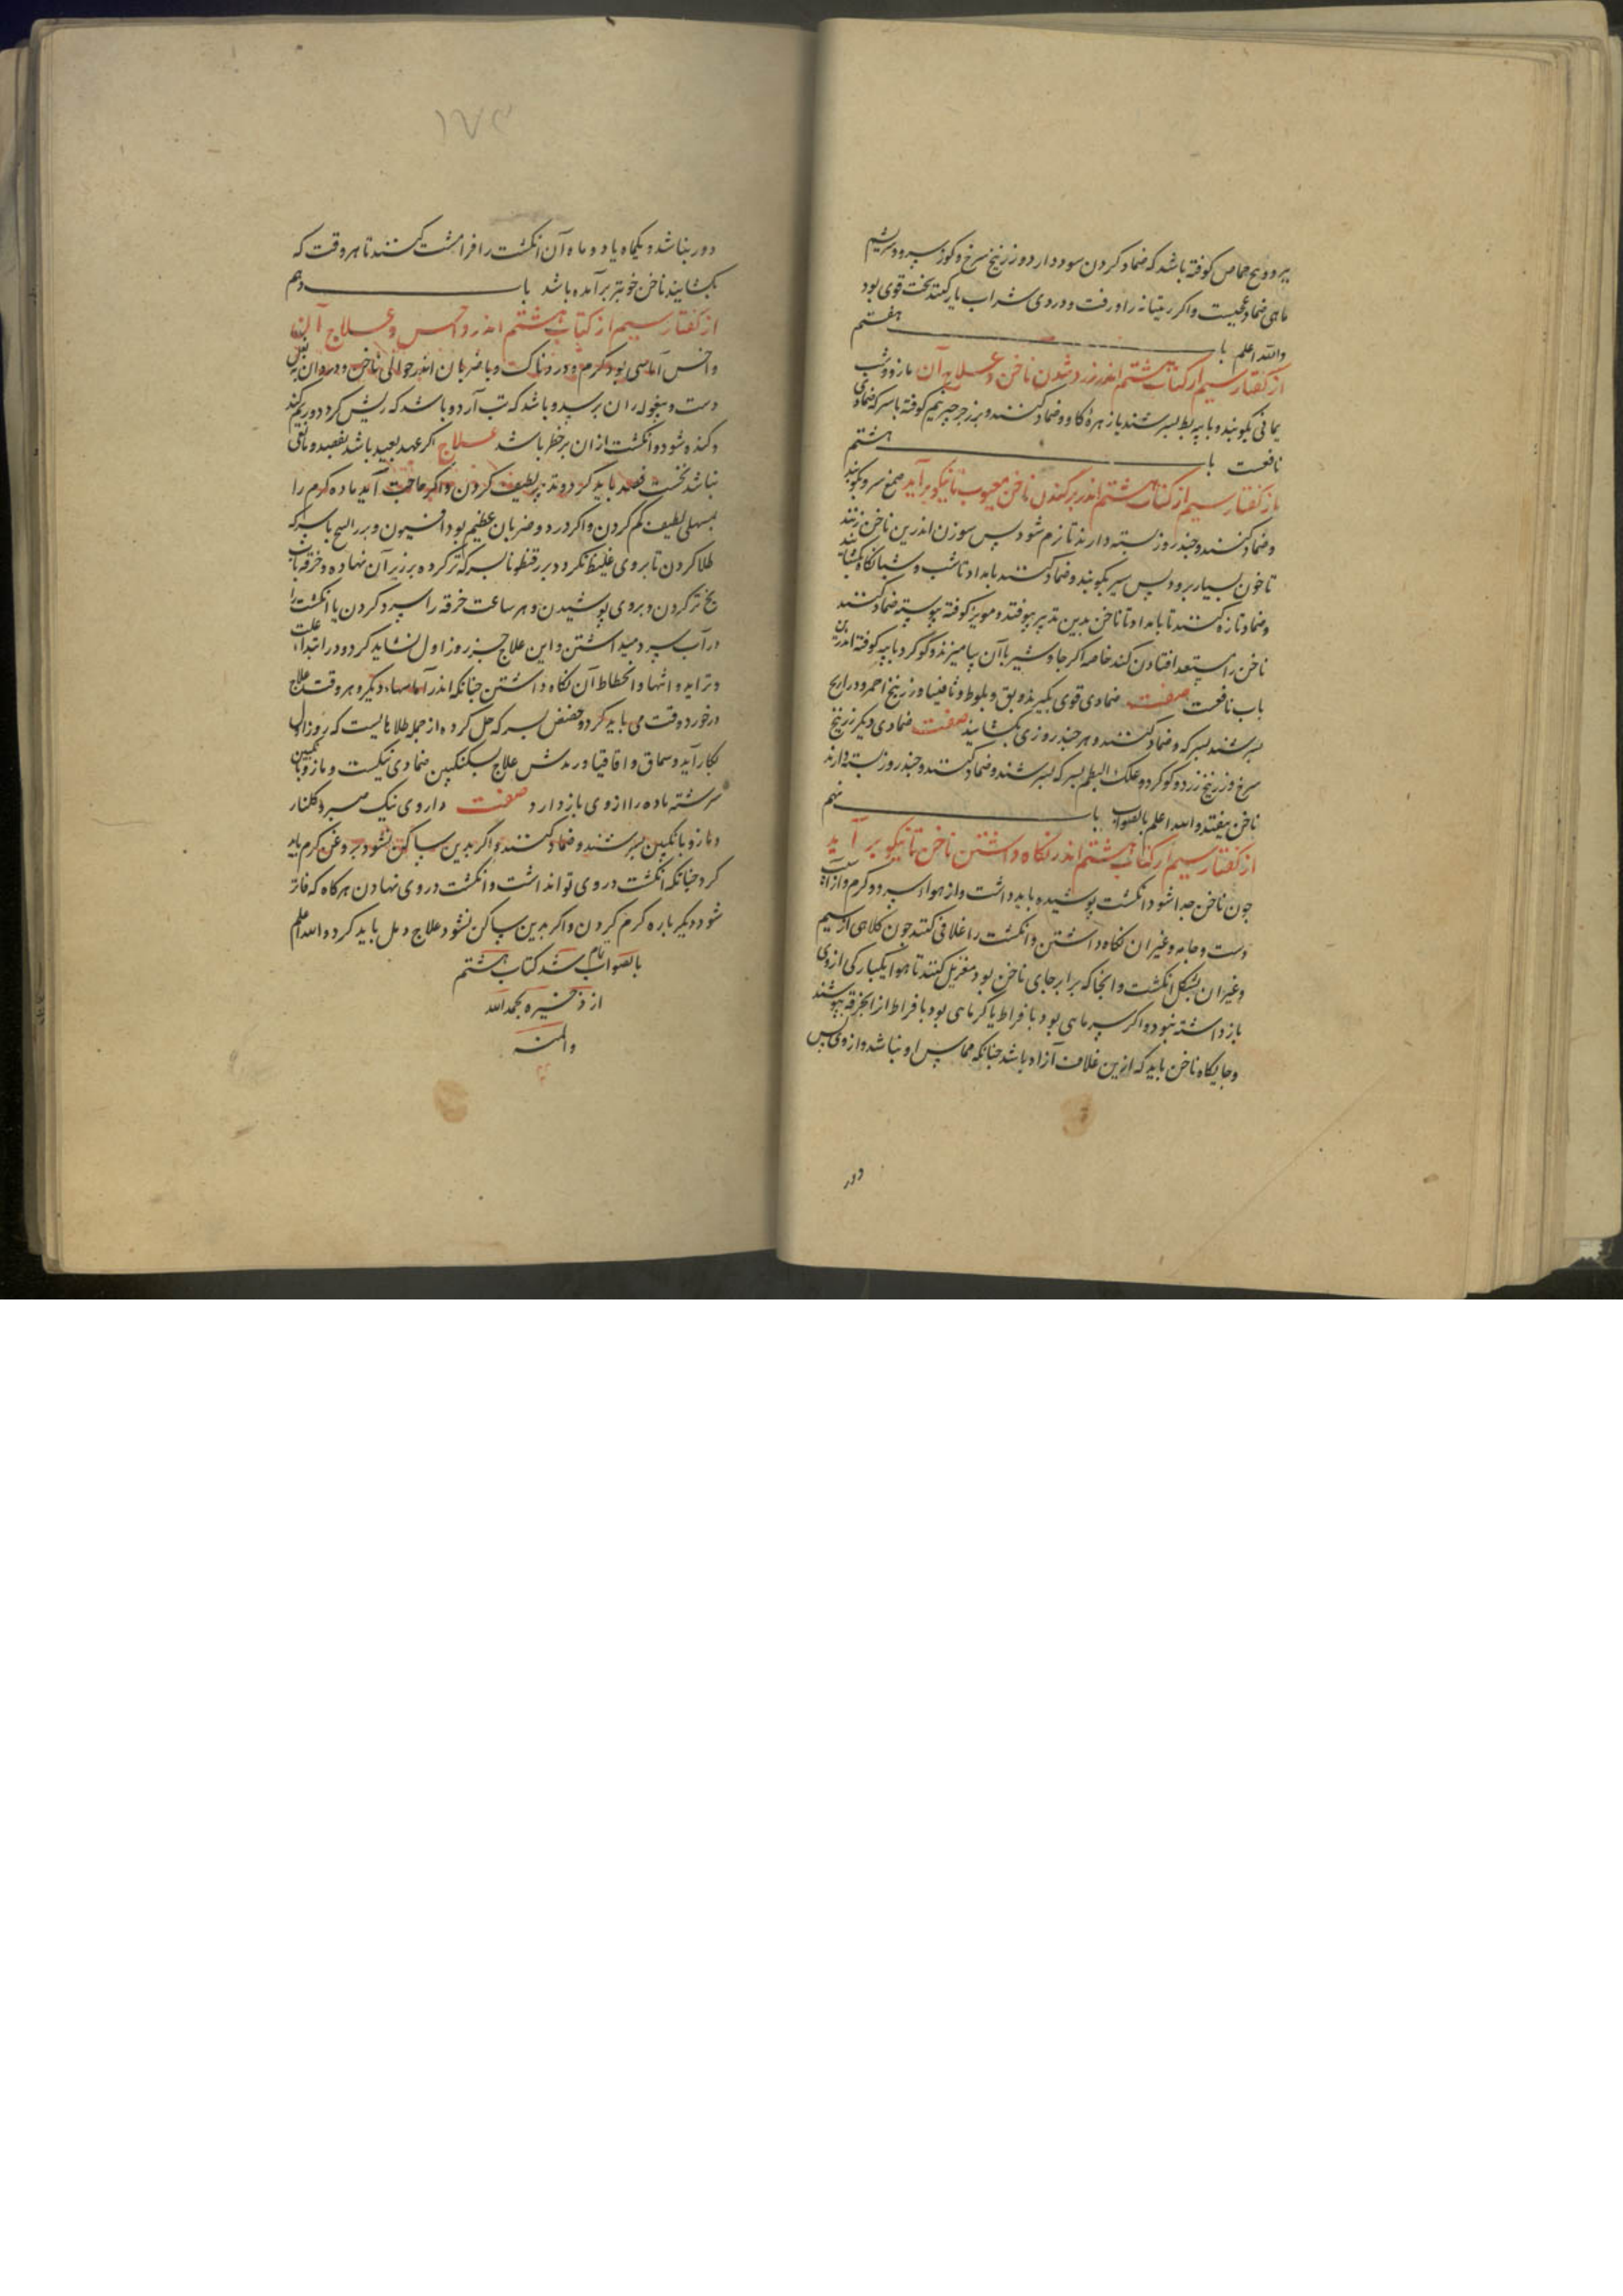 پیرود و بیخ حماض کوفته باشد که ضماد کردن سود دارد و زرنیخ سرخ و کوز سرو و سریشم
ماهی ضماد عجیبست و اکر ریتیانه را و زفت و دردی شراب یار کنند سخت قوی بود
والله اعلم باب هفتم
از کفتار سیم از کتاب هشتم اندر زرد شدن ناخن و علاج آن مازو و شب
یمانی بکوبند و با پیه بط بسرشند یا زهرهٔ کاو و ضماد کنند و بزر جرجیر هم کوفته با سرکه ضمادی
نافعست باب هشتم
از کفتار سیم از کتاب هشتم اندر برکندن ناخن معیوب تا نیکو برآید صمغ سرو بکوبند
و ضماد کنند و چند روز بسته دارند تا نرم شود پس سوزن اندر بن ناخن زنند
تا خون بسیار برود پس سیر بکوبند و ضماد کنند بامداد تا شب و شبانکاه بکشایند
و ضماد تازه کنند تا بامداد تا ناخن بدین تدبیر بیوفتد و مویز کوفته پیوسته ضماد کنند
ناخن را مستعد افتادن کند خاصه اکر جاوشیر با آن بیامیزند و کوکرد با پیه کوفته اندرین
باب نافعست صفت ضمادی قوی بکیرند دبق و بلوط و ثافسیا و زرنیخ احمر و ذراریح
بسرشند بسرکه و ضماد کنند و هر چند روزی بکشایند صفت ضمادی دیکر زرنیخ
سرخ و زرنیخ زرد و کوکرد و علک البطم بسرکه بسرشند و ضماد کنند و چند روز بسته دارند
ناخن بیفتد والله اعلم بالصواب باب نهم
از کفتار سیم از کتاب هشتم اندر نکاه داشتن ناخن تا نیکو برآید
چون ناخن جدا شود انکشت پوشیده باید داشت و از هواء سرد و کرم و از آسیب
دست و جامه و غیر ان نکاه داشتن و انکشت را غلافی کنند چون کلاهی از سیم
و غیر ان بشکل انکشت و انجا که برابر جای ناخن بود مغربل کنند تا هوا یکبارکی از وی
باز داشته نبود و اکر سرماهی بود بافراط یا کرماهی بود بافراط از انجا خرقه بپوشند
و جایکاه ناخن باید که ازین غلاف آزاد باشد چنانکه مماس او نباشد و از وی بس
دور
۱۷۴
دور نباشد و یکماه یا دو ماه آن انکشت را فرامشت کنند تا هر وقت که
بکشایند ناخن خوبتر برآمده باشد باب دهم
از کفتار سیم از کتاب هشتم اندر داحس و علاج آن
داحس آماسی بود کرم و دردناک و با ضربان اندر حوالی ناخن و درد ان به بغل
دست و بیغوله ران برسد و باشد که تب آرد و باشد که ریش کردد و ریم کند
و کنده شود و انکشت از ان بر خطر باشد علاج اکر عهد بعید باشد بفصد و مانعی
نباشد نخست فصد باید کرد و تدبیر لطیف کردن و اکر حاجت آید ماده کرم را
بمسهلی لطیف کم کردن و اکر درد و ضربان عظیم بود افیون و بزر البنج با سرکه
طلا کردن تا بر وی غلیظ نکردد و بزرقطونا بسرکه تر کرده بر زیر آن نهاده و خرقه باب
یخ تر کردن و بر وی پوشیدن و هر ساعت خرقه را سرد کردن یا انکشت را
در آب سرد میداشتن و این علاج جز روز اول نشاید کرد و در ابتداء علت
و تزاید و انتها و انحطاط آن نکاه داشتن چنانکه اندر آماسهاء دیکر و هر وقت علاج
درخورد وقت می باید کرد و حضض بسرکه حل کرده از جمله طلاهاییست که روز اول
بکار آید و سماق و اقاقیا و ربدش علاج بسکنکبین ضمادی نیکست و مازو بانکبین
سرشته ماده را از وی باز دارد صفت داروی نیک صبر و کلنار
و مازو بانکبین بسرشند و ضماد کنند و اکر بدین ساکن نشود بروغن کرم باید
کرد چنانکه انکشت در وی تواند داشت و انکشت در وی نهادن هر کاه که فاتر
شود دیکر باره کرم کردن و اکر بدین ساکن نشود علاج دمل باید کرد والله اعلم
بالصواب تمام شد کتاب هشتم
از ذخیره بحمدالله
والمنه